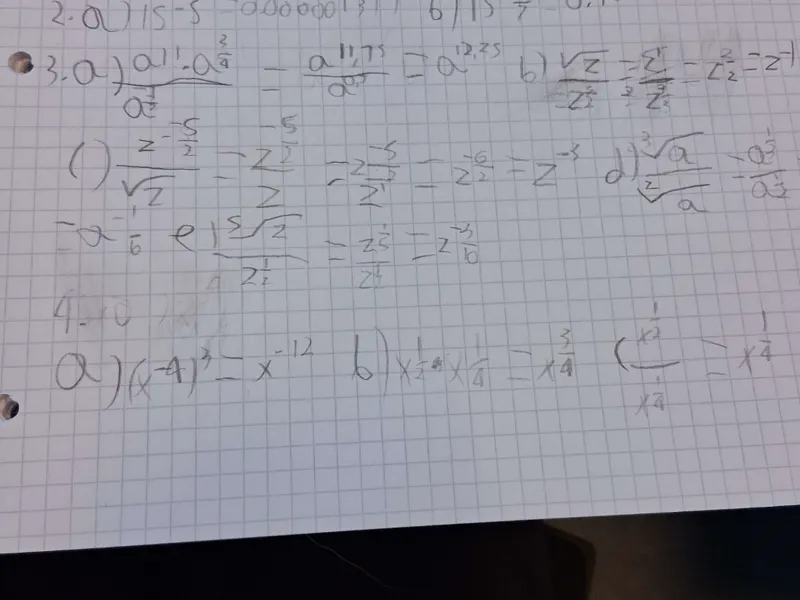 2. a) 15^-5 0.000001317 b) 15
3. a) (a^11 · a^(3/4)) / a^(1/2) = a^11,75 / a^0,5 = a^12,25 b) √z / z = z / z = z^(2/2) = z^-1
c) z^(-5/2) / √z = z^(-5/2) / z = z^-5 / z^1 = z^(-6/2) = z^-3 d) ³√a / ²√a = a^(1/3) / a^(1/2)
= a^(-1/6) e) ⁵√z / z^(1/2) = z^(1/5) / z^(1/2) = z^(-3/10)
4.
a) (x^-4)^3 = x^-12 b) x^(1/2) · x^(1/4) = x^(3/4) ( x^(1/2) / x^(1/4) = x^(1/4)